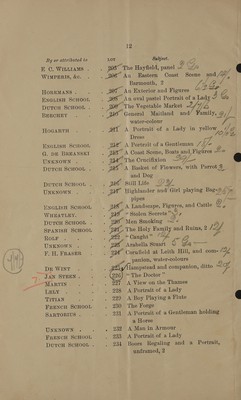 12
By or attributed to LOT Subject
E C. WILLIAMS . . 205 The Hayfield, panel
WIMPERIS, &c. . 206 An Eastern Coast Scene and
Barmouth, 2
HOREMANS . . 207 An Exterior and Figures
ENGLISH SCHOOL 208 An oval pastel Portrait of a Lady
DUTCH SCHOOL . 209 The Vegetable Market
BEECHEY . . 210 General Maitland and Family,
water-colour
HOGARTH . . 211 A Portrait of a Lady in yellow
Dress
ENGLISH SCHOOL 212 A Portrait of a Gentleman
G. DE BREANSKI 213 A Coast Scene, Boats and Figures
UNKNOWN . . 214 The Crucifixion
DUTCH SCHOOL . 215 A Basket of Flowers, with Parrot
and Dog
DUTCH SCHOOL . 216 Still Life
UNKNOWN . . 217 Highlander and Girl playing Bag-
pipes
ENGLISH SCHOOL 218 A Landscape, Figures, and Cattle
WHEATLEY. . 219 "Stolen Secrets"
DUTCH SCHOOL . 220 Men Smoking
SPANISH SCHOOL 221 The Holy Family and Ruins, 2
ROLF . . 222 "Caught"
UNKNOWN . . 223 Arabella Stuart
F. H. FRASER . 224 Cornfield at Leith Hill, and com-
panion, water-colours
DE WINT . 225 Hampstead and companion, ditto
JAN STEEN . . 226 "The Doctor"
MARTIN . . 227 A View on the Thames
LELY . . 228 A Portrait of a Lady
TITIAN . . 229 A Boy Playing a Flute
FRENCH SCHOOL 230 The Forge
SARTORIUS . . 231 A Portrait of a Gentleman holding
a Horse
UNKNOWN . . 232 A Man in Armour
FRENCH SCHOOL 233 A Portrait of a Lady
DUTCH SCHOOL . 234 Boors Regaling and a Portrait,
unframed, 2